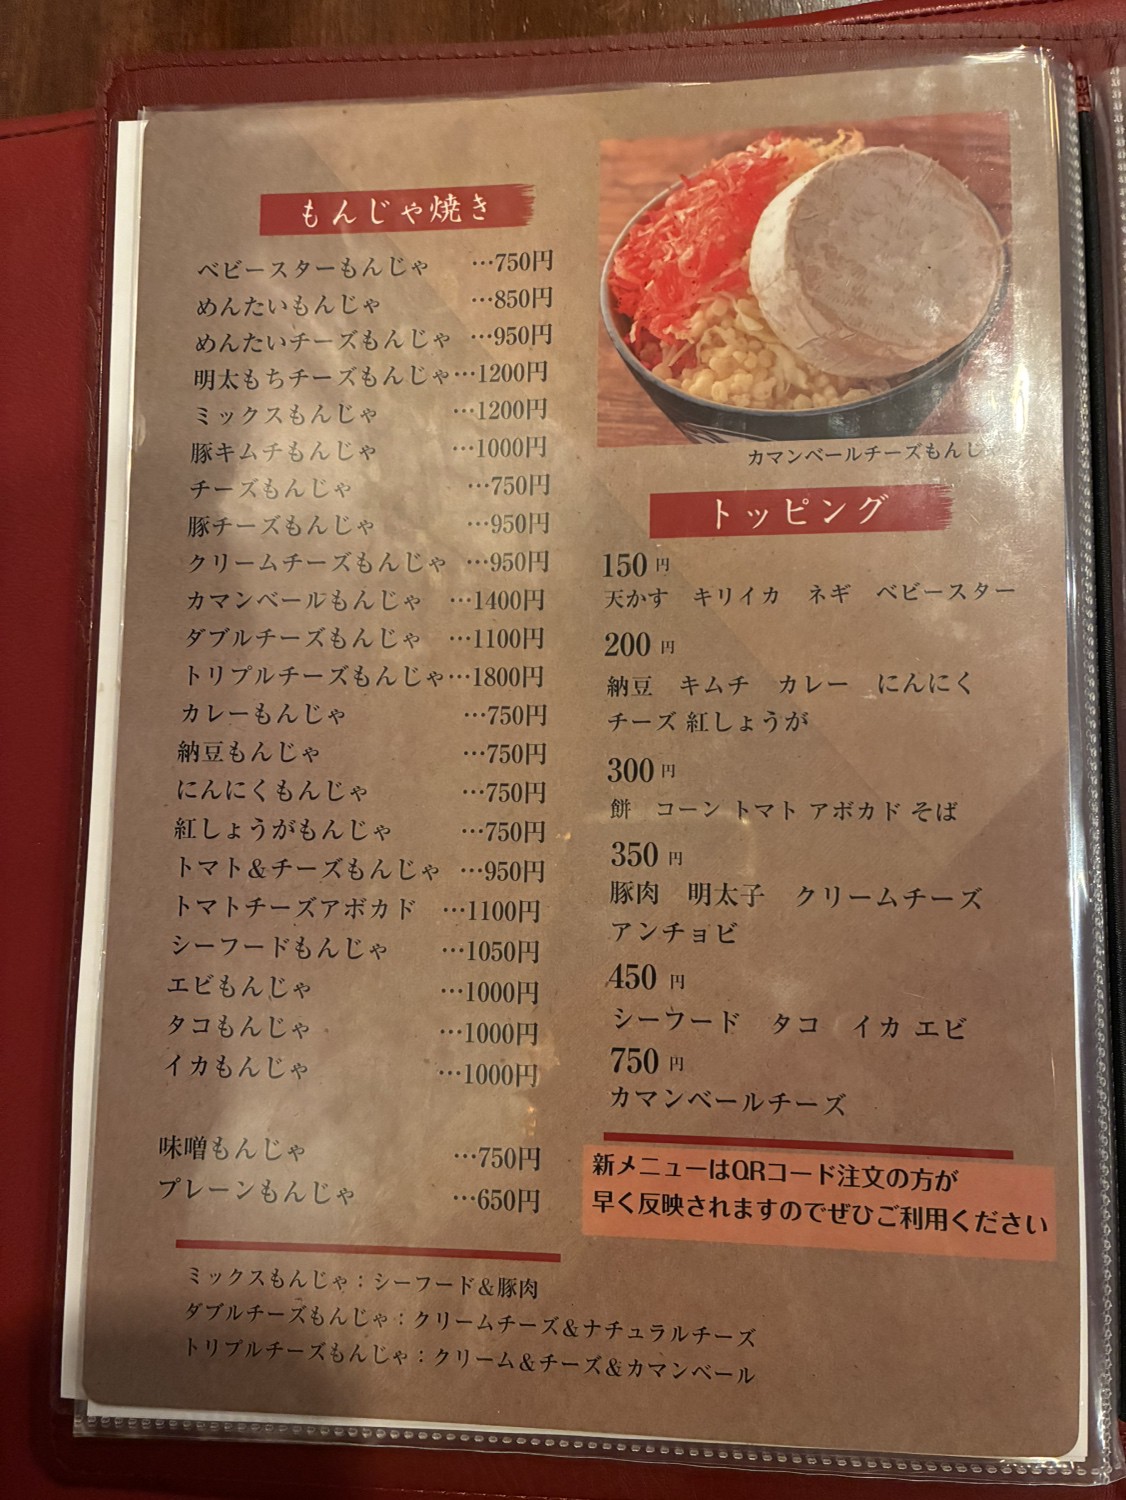 もんじゃ焼き
ベビースターもんじゃ …750円
めんたいもんじゃ …850円
めんたいチーズもんじゃ …950円
明太もちチーズもんじゃ…1200円
ミックスもんじゃ …1200円
豚キムチもんじゃ …1000円
チーズもんじゃ …750円
豚チーズもんじゃ …950円
クリームチーズもんじゃ …950円
カマンベールもんじゃ …1400円
ダブルチーズもんじゃ …1100円
トリプルチーズもんじゃ…1800円
カレーもんじゃ …750円
納豆もんじゃ …750円
にんにくもんじゃ …750円
紅しょうがもんじゃ …750円
トマト&チーズもんじゃ …950円
トマトチーズアボカド …1100円
シーフードもんじゃ …1050円
エビもんじゃ …1000円
タコもんじゃ …1000円
イカもんじゃ …1000円
味噌もんじゃ …750円
プレーンもんじゃ …650円
ミックスもんじゃ：シーフード&豚肉
ダブルチーズもんじゃ：クリームチーズ&ナチュラルチーズ
トリプルチーズもんじゃ：クリーム&チーズ&カマンベール
カマンベールチーズもんじゃ
トッピング
150円
天かす キリイカ ネギ ベビースター
200円
納豆 キムチ カレー にんにく
チーズ 紅しょうが
300円
餅 コーン トマト アボカド そば
350円
豚肉 明太子 クリームチーズ
アンチョビ
450円
シーフード タコ イカ エビ
750円
カマンベールチーズ
新メニューはQRコード注文の方が
早く反映されますのでぜひご利用ください